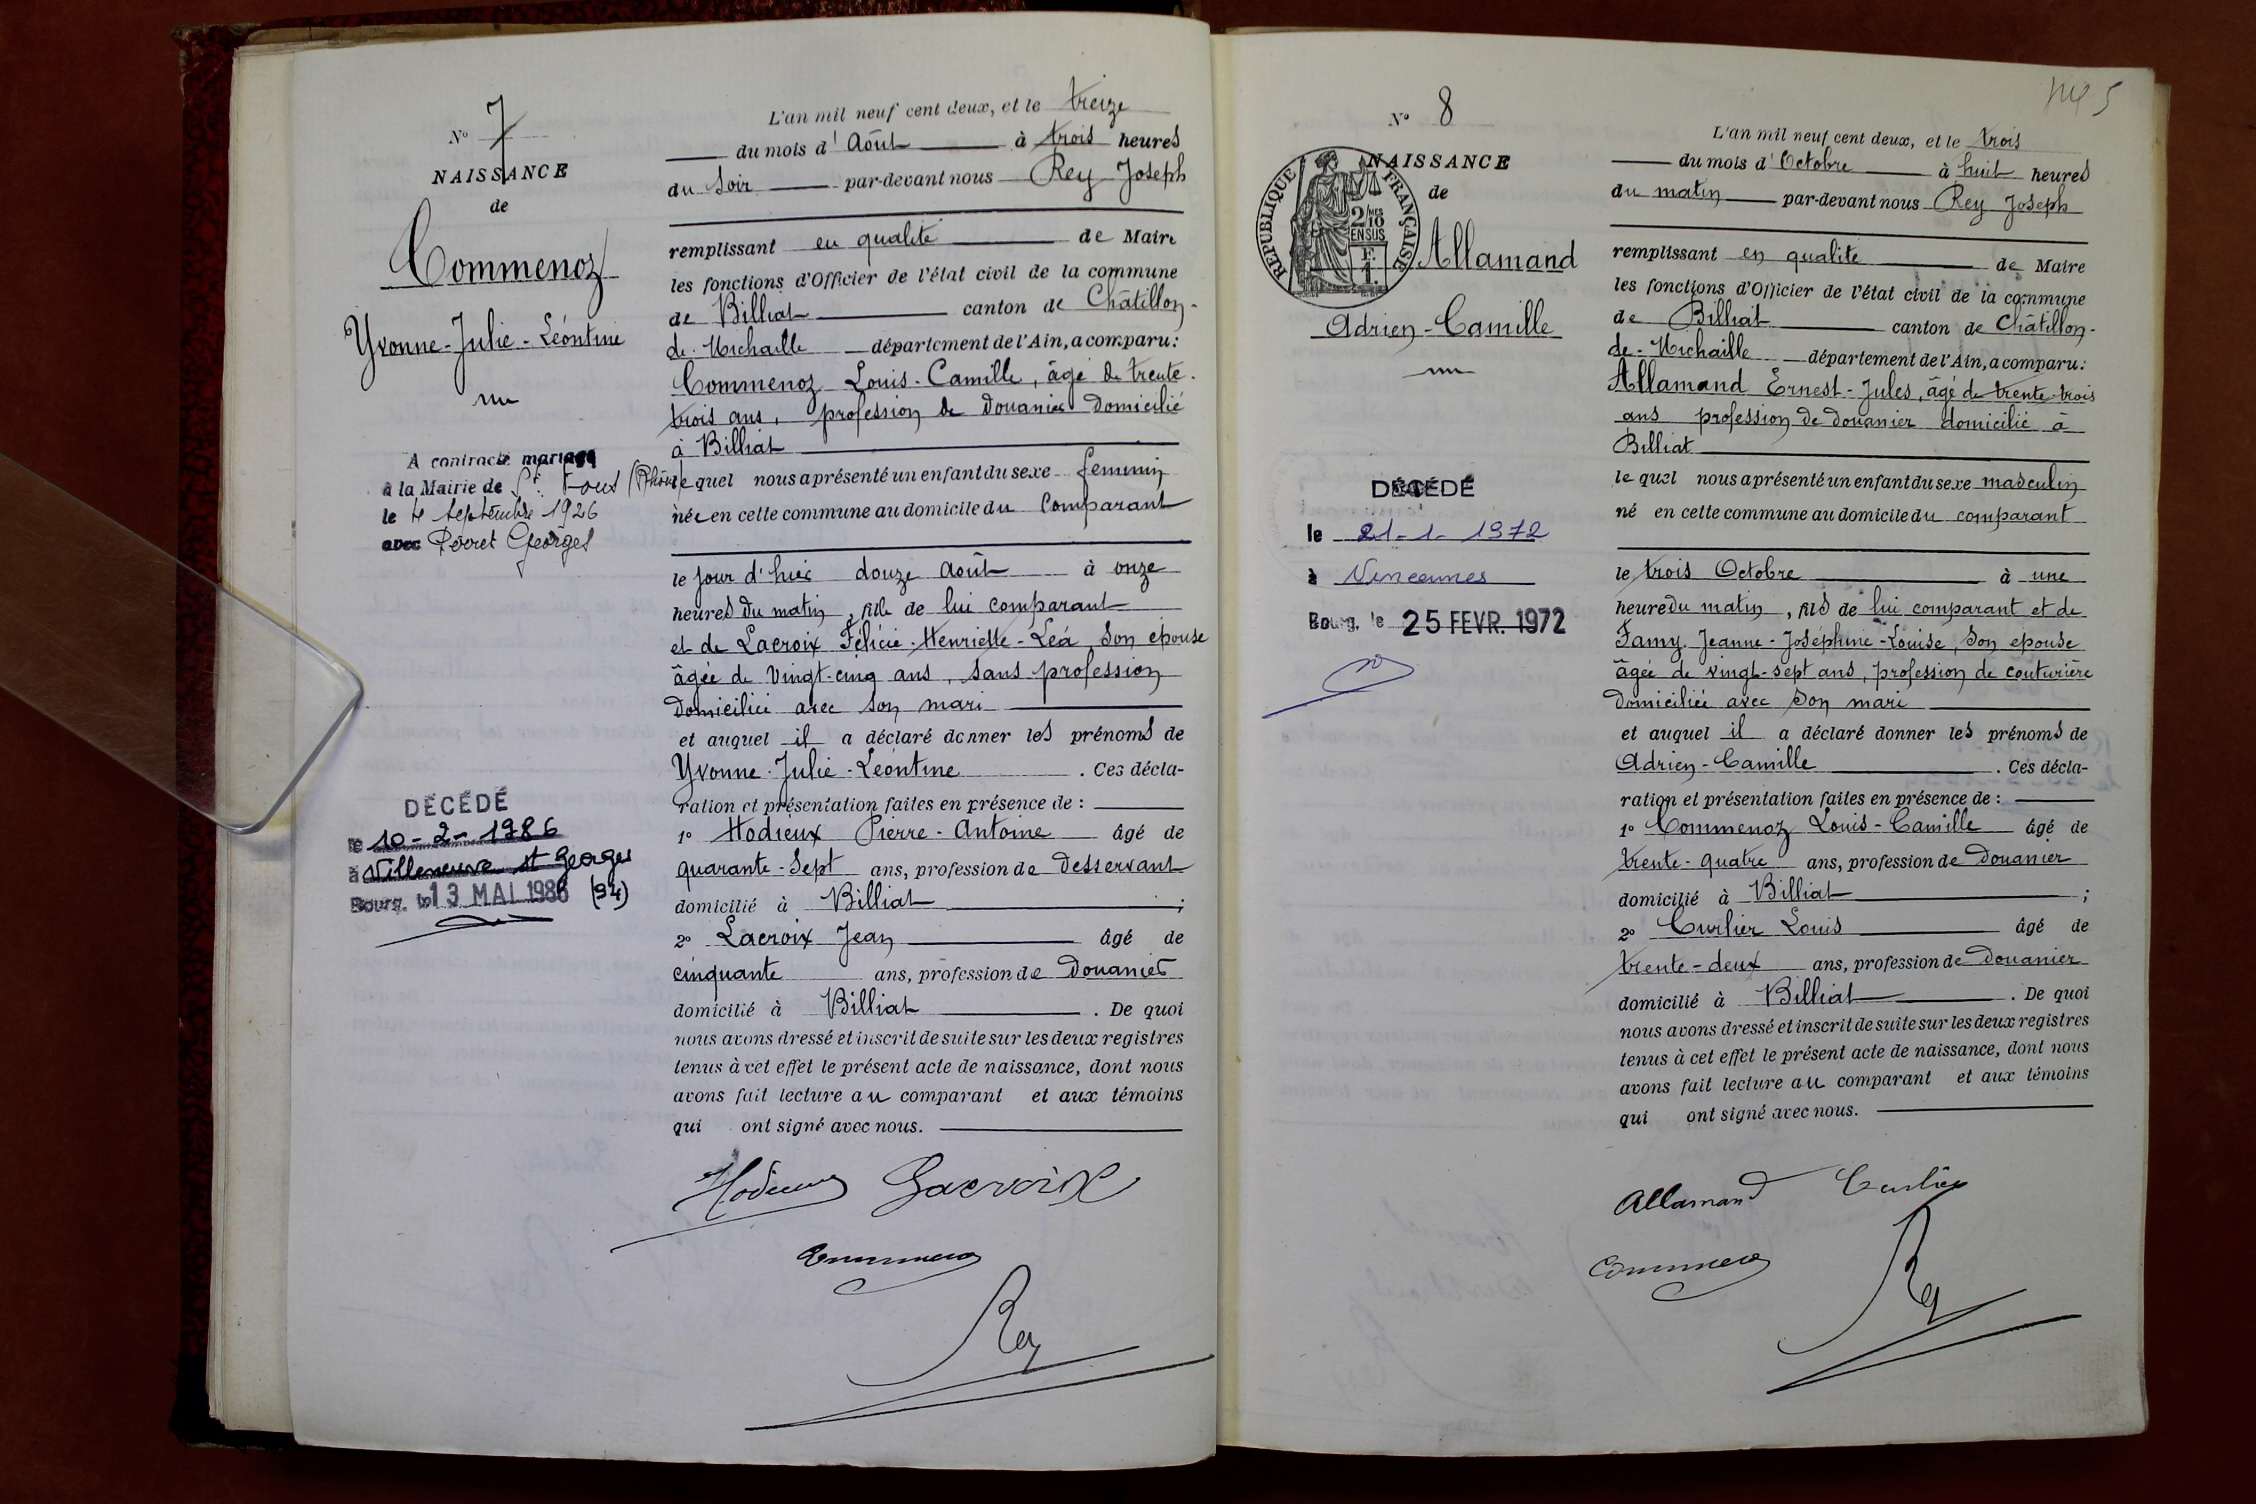 N° 7
NAISSANCE
de
Commenoz
Yvonne-Julie-Léontine
A contracté mariage
à la Mairie de St. Fons (Rhône)
le 4 septembre 1926
avec Perret Georges
DÉCÉDÉ
le 10-2-1986
à Villeneuve st Georges
Bourg, le 13 MAI 1986 (94)
L'an mil neuf cent deux, et le treize
du mois d'Août à trois heures
du soir par-devant nous Rey Joseph
remplissant en qualité de Maire
les fonctions d'Officier de l'état civil de la commune
de Billiat canton de Châtillon-
de-Michaille département de l'Ain, a comparu:
Commenoz Louis-Camille, âgé de trente-
trois ans, profession de Douanier domicilié
à Billiat
lequel nous a présenté un enfant du sexe feminin
née en cette commune au domicile du Comparant
le jour d'hier douze Août à onze
heures du matin, fille de lui comparant
et de Lacroix Félicie-Henriette-Léa son épouse
âgée de vingt-cinq ans, sans profession
domiciliée avec son mari
et auquel il a déclaré donner les prénoms de
Yvonne-Julie-Leontine. Ces décla-
ration et présentation faites en présence de :
1° Hodieux Pierre-Antoine âgé de
quarante-sept ans, profession de Desservant
domicilié à Billiat ;
2° Lacroix Jean âgé de
cinquante ans, profession de Douanier
domicilié à Billiat. De quoi
nous avons dressé et inscrit de suite sur les deux registres
tenus à cet effet le présent acte de naissance, dont nous
avons fait lecture au comparant et aux témoins
qui ont signé avec nous.
Hodieux Lacroix
Commenoz
Rey
N° 8
NAISSANCE
de
RÉPUBLIQUE FRANÇAISE
2/10 MES
EN SUS
F.
1.
Allamand
Adrien-Camille
DÉCÉDÉ
le 21-1-1972
à Vincennes
Bourg, le 25 FEVR. 1972
L'an mil neuf cent deux, et le trois
du mois d'Octobre à huit heures
du matin par-devant nous Rey Joseph
remplissant en qualité de Maire
les fonctions d'Officier de l'état civil de la commune
de Billiat canton de Châtillon-
de-Michaille département de l'Ain, a comparu:
Allamand Ernest-Jules, âgé de trente-trois
ans profession de douanier domicilié à
Billiat
lequel nous a présenté un enfant du sexe masculin
né en cette commune au domicile du comparant
le trois Octobre à une
heure du matin, fils de lui comparant et de
Famy Jeanne-Joséphine-Louise, son epouse
âgée de vingt-sept ans, profession de couturière
domiciliée avec son mari
et auquel il a déclaré donner les prénoms de
Adrien-Camille. Ces décla-
ration et présentation faites en présence de :
1° Commenoz Louis-Camille âgé de
trente-quatre ans, profession de Douanier
domicilié à Billiat ;
2° Curlier Louis âgé de
trente-deux ans, profession de Douanier
domicilié à Billiat. De quoi
nous avons dressé et inscrit de suite sur les deux registres
tenus à cet effet le présent acte de naissance, dont nous
avons fait lecture au comparant et aux témoins
qui ont signé avec nous.
Allamand Curlier
Commenoz
Rey